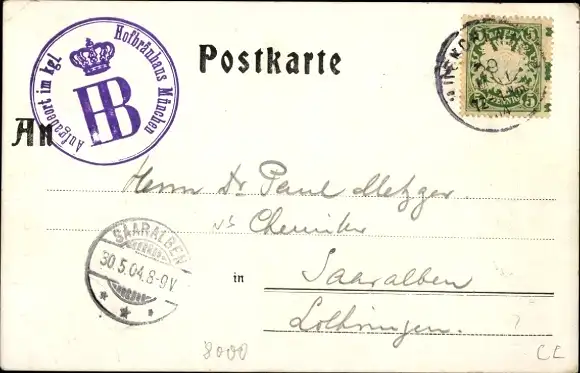 Aufgabeort im kgl. Hofbräuhaus München
HB
Postkarte
5 5
PFENNIG
5 5
An
Herrn Dr Paul Metzger.
Chemiker
SAARALBEN
30.5.04.8-9V
in
Saaralben
Lothringen.
8000
CC